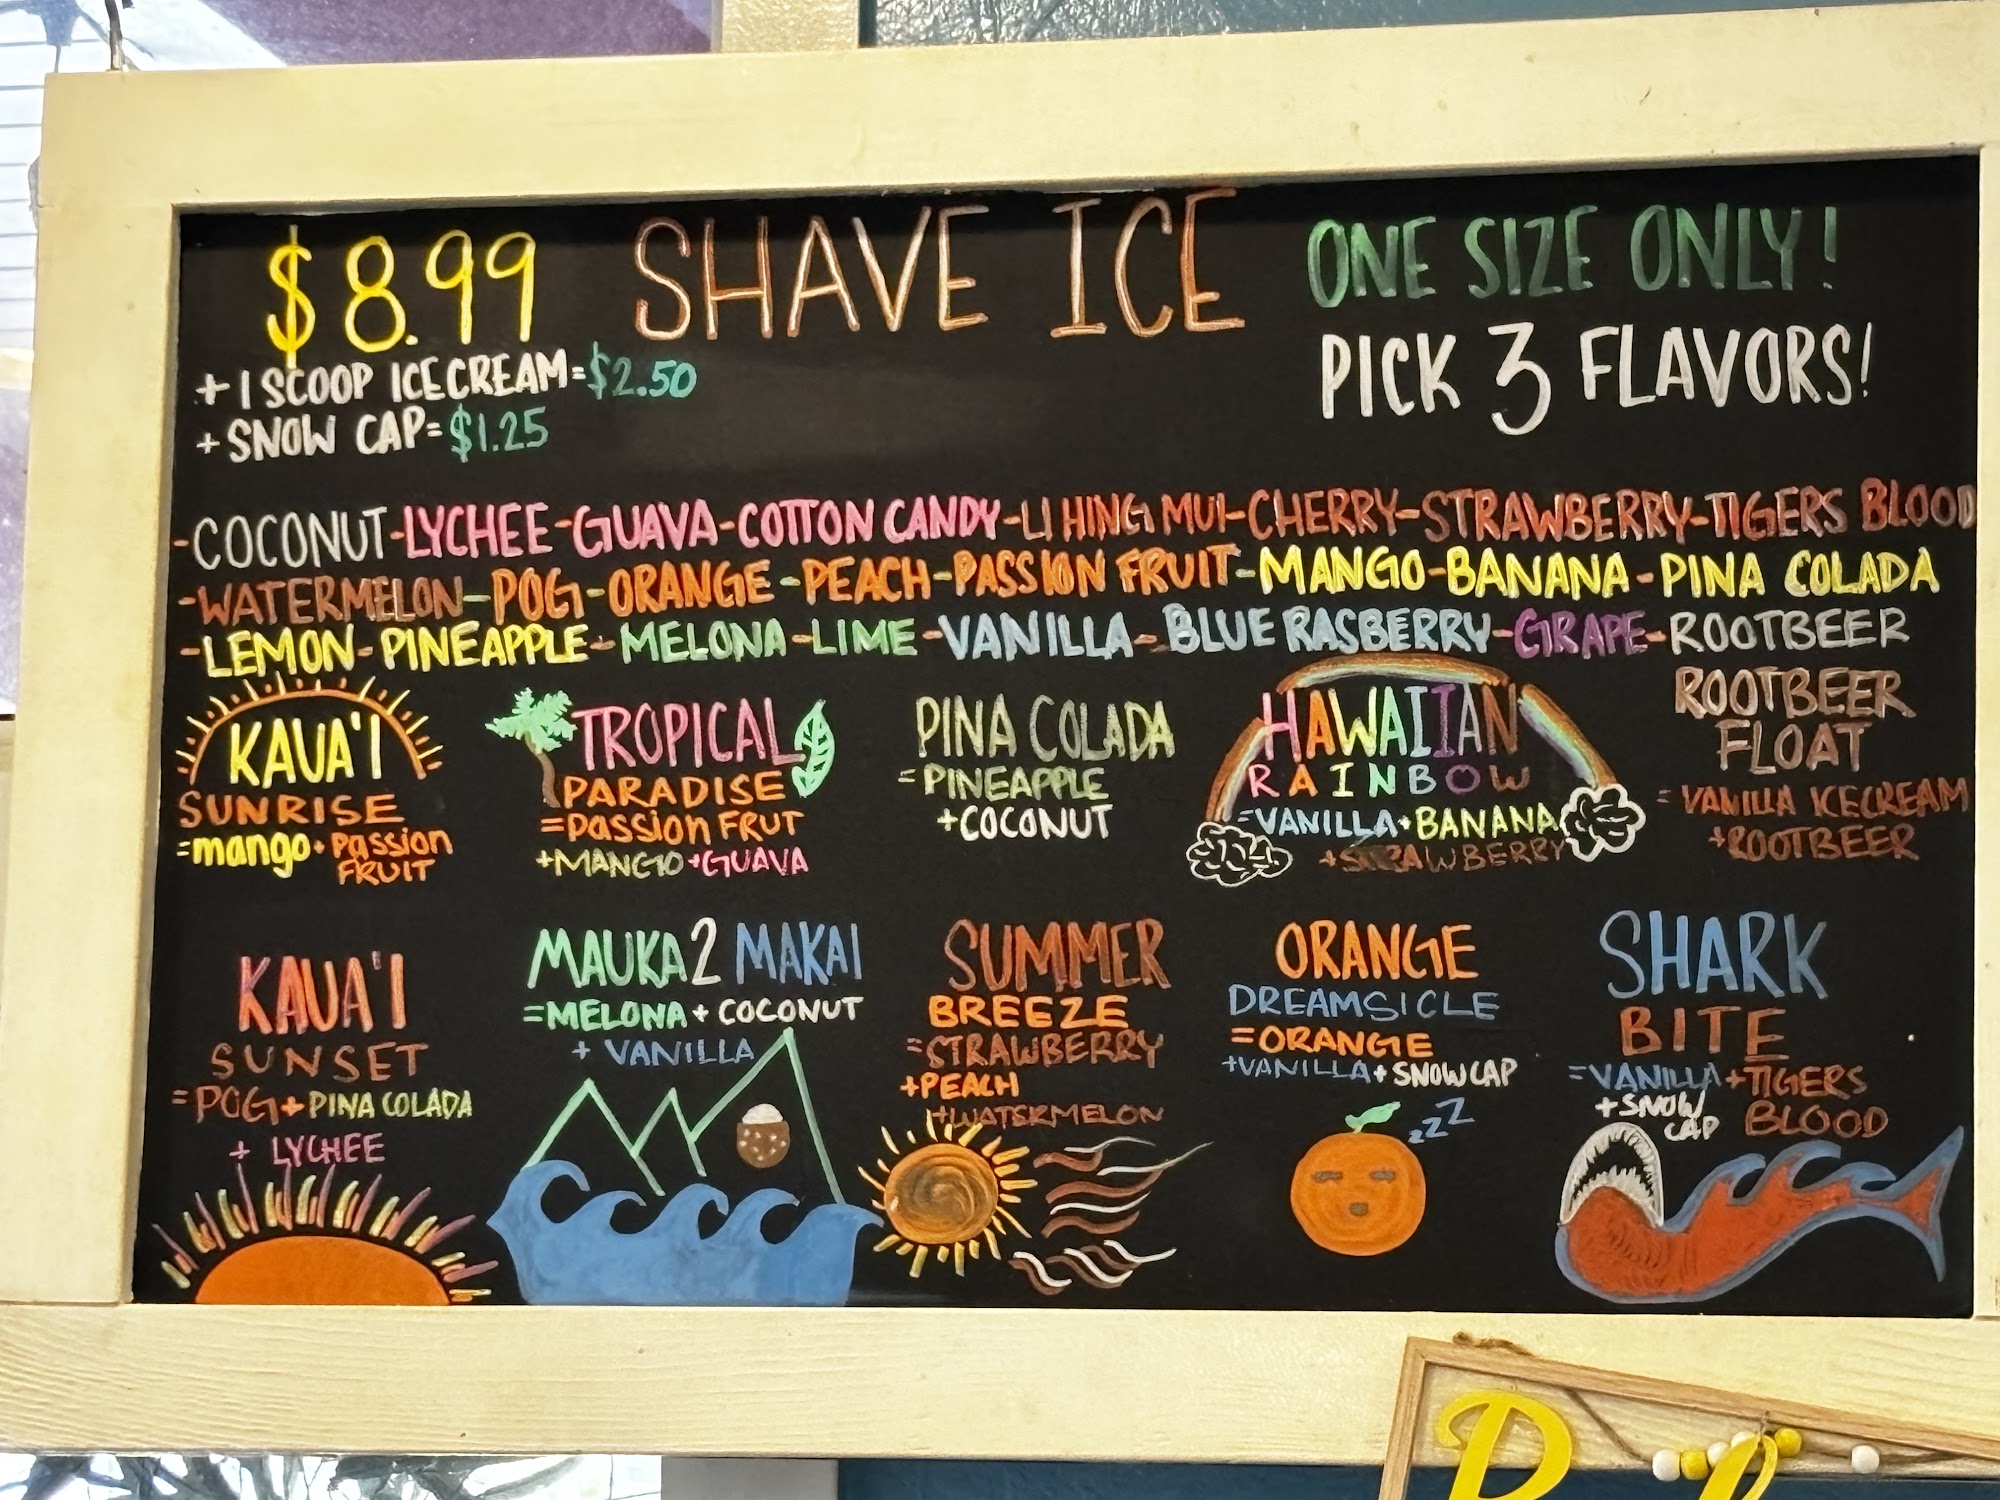 $8.99
SHAVE ICE
ONE SIZE ONLY!
PICK 3 FLAVORS!
+ 1 SCOOP ICECREAM=$2.50
+ SNOW CAP=$1.25
-COCONUT-LYCHEE-GUAVA-COTTON CANDY-LI HING MUI-CHERRY-STRAWBERRY-TIGERS BLOOD
-WATERMELON-POG-ORANGE-PEACH-PASSION FRUIT-MANGO-BANANA-PINA COLADA
-LEMON-PINEAPPLE-MELONA-LIME-VANILLA-BLUE RASBERRY-GRAPE-ROOTBEER
KAUA'I
SUNRISE
=mango+Passion
FRUIT
TROPICAL
PARADISE
=PASSION FRUT
+MANGO+GUAVA
PINA COLADA
=PINEAPPLE
+COCONUT
HAWAIIAN
RAINBOW
=VANILLA+BANANA
+STRAWBERRY
ROOTBEER
FLOAT
=VANILLA ICECREAM
+ROOTBEER
KAUA'I
SUNSET
=POG+PINA COLADA
+ LYCHEE
MAUKA 2 MAKAI
=MELONA+COCONUT
+ VANILLA
SUMMER
BREEZE
=STRAWBERRY
+PEACH
+WATERMELON
ORANGE
DREAMSICLE
=ORANGE
+VANILLA+SNOWCAP
zzz
SHARK
BITE
=VANILLA+TIGERS
BLOOD
+SNOW
CAP